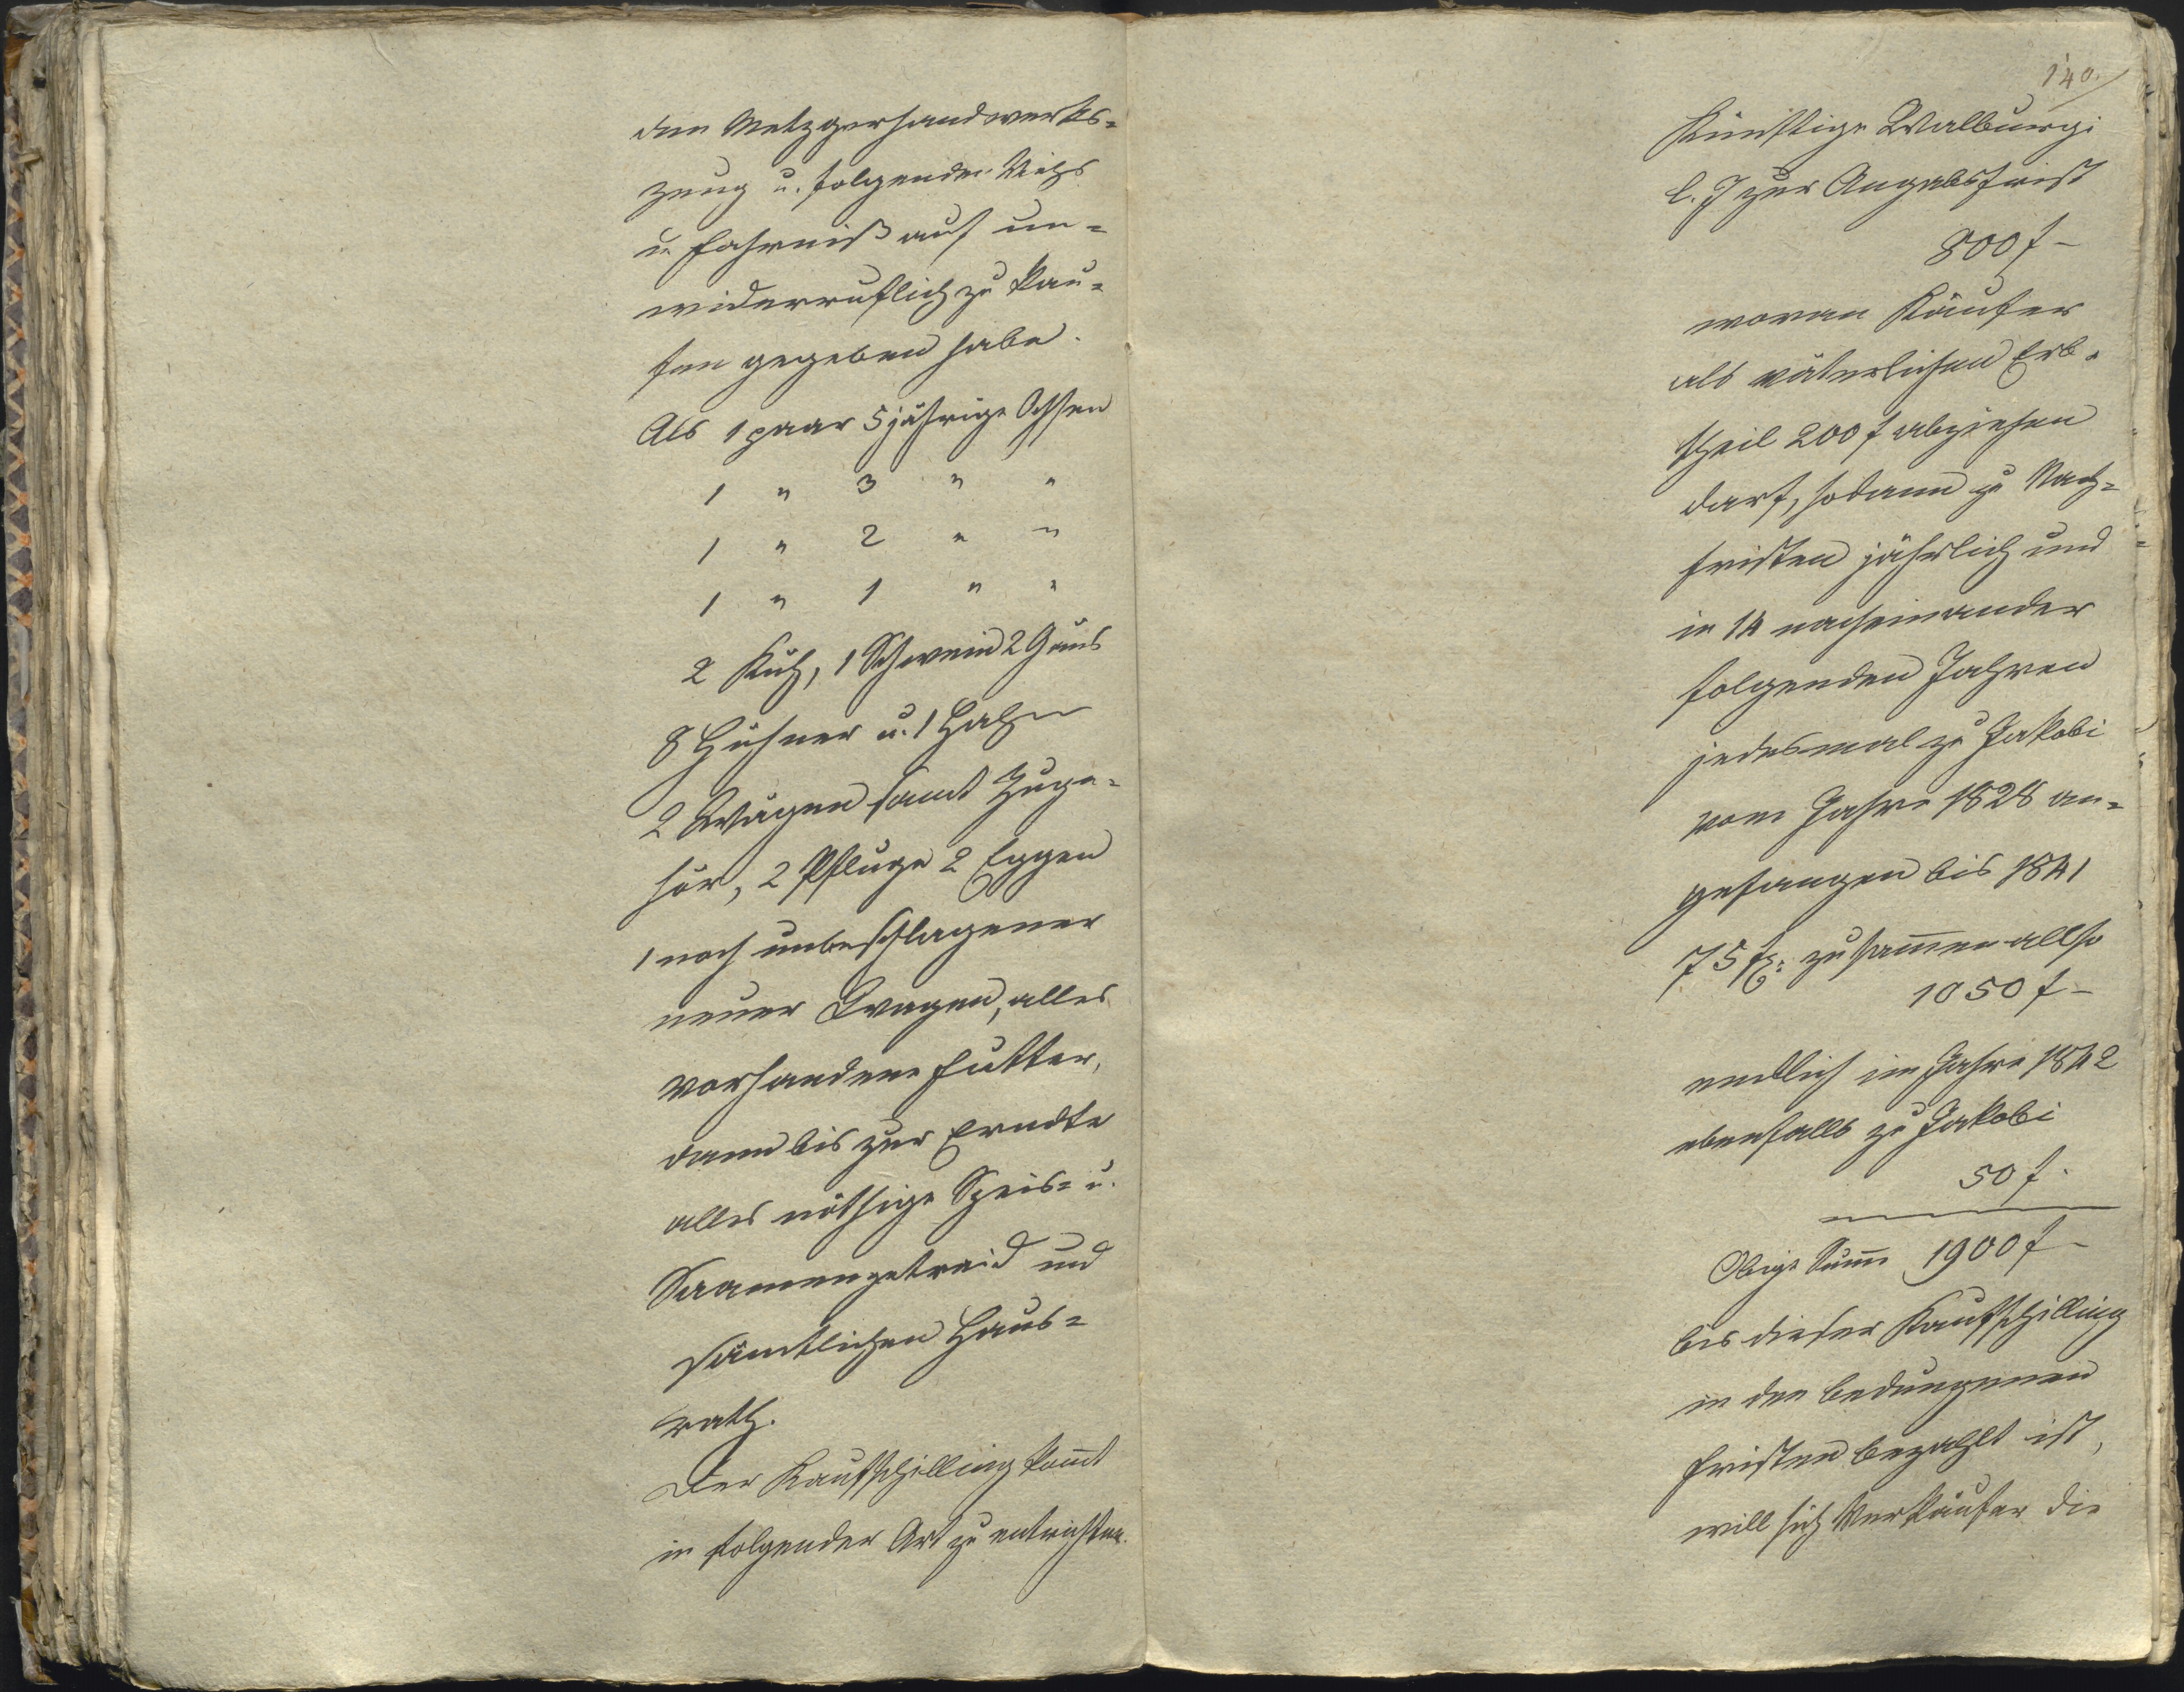 den Metzgerhandwerks-
zeug u. folgendes Vieh
u. Fahrniß auf un-
widerruflich zu kau-
fen gegeben habe.
Als 1 paar 5 jährige Ochsen
1 " 3 " "
1 " 2 " "
1 " 1 " "
2 Küh, 1 Schwein 2 Gäns
8 Hühner u. 1 Hahn
2 Wägen samt Zuge-
hör, 2 Pflüge 2 Eggen
1 noch unbeschlagener
neuer Wagen, alles
vorhandene Futter,
dann bis zur Erndte
alles nöthige Speis- u.
Saamengetreid und
sämtlichen Haus-
rath.
Der Kaufschilling kom̄t
in folgender Art zu entrichten.
140.
Künftige Walburgi
l. J zur Angabsfrist
800 f –
woran Käufer
als väterlichen Erb-
theil 200 f abziehen
darf, sodann zu Nach-
fristen jährlich und
in 14 nacheinander
folgenden Jahren
jedesmal zu Jakobi
vom Jahre 1828 an-
gefangen bis 1841
75 f zusam̄en allso
1050 f –
endlich im Jahre 1842
ebenfalls zu Jakobi
50 f.
Obige Sum̄e 1900 f –
bis dieser Kaufschilling
in den bedungenen
Fristen bezahlt ist,
will sich Verkäufer die